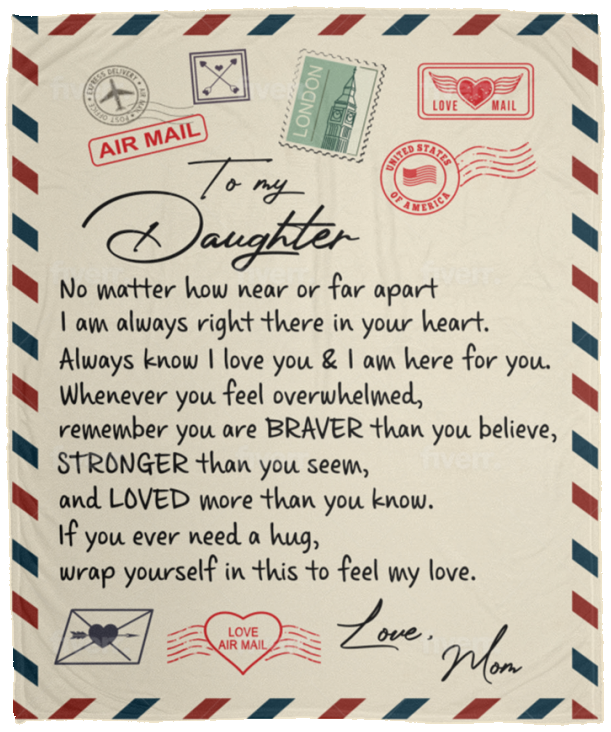 EXPRESS DELIVERY • AIR MAIL • POST OFFICE
AIR MAIL
LONDON
LOVE MAIL
UNITED STATES
OF AMERICA
To my
Daughter
No matter how near or far apart
I am always right there in your heart.
Always know I love you & I am here for you.
Whenever you feel overwhelmed,
remember you are BRAVER than you believe,
STRONGER than you seem,
and LOVED more than you know.
If you ever need a hug,
wrap yourself in this to feel my love.
LOVE
AIR MAIL
Love,
Mom
fiverr.